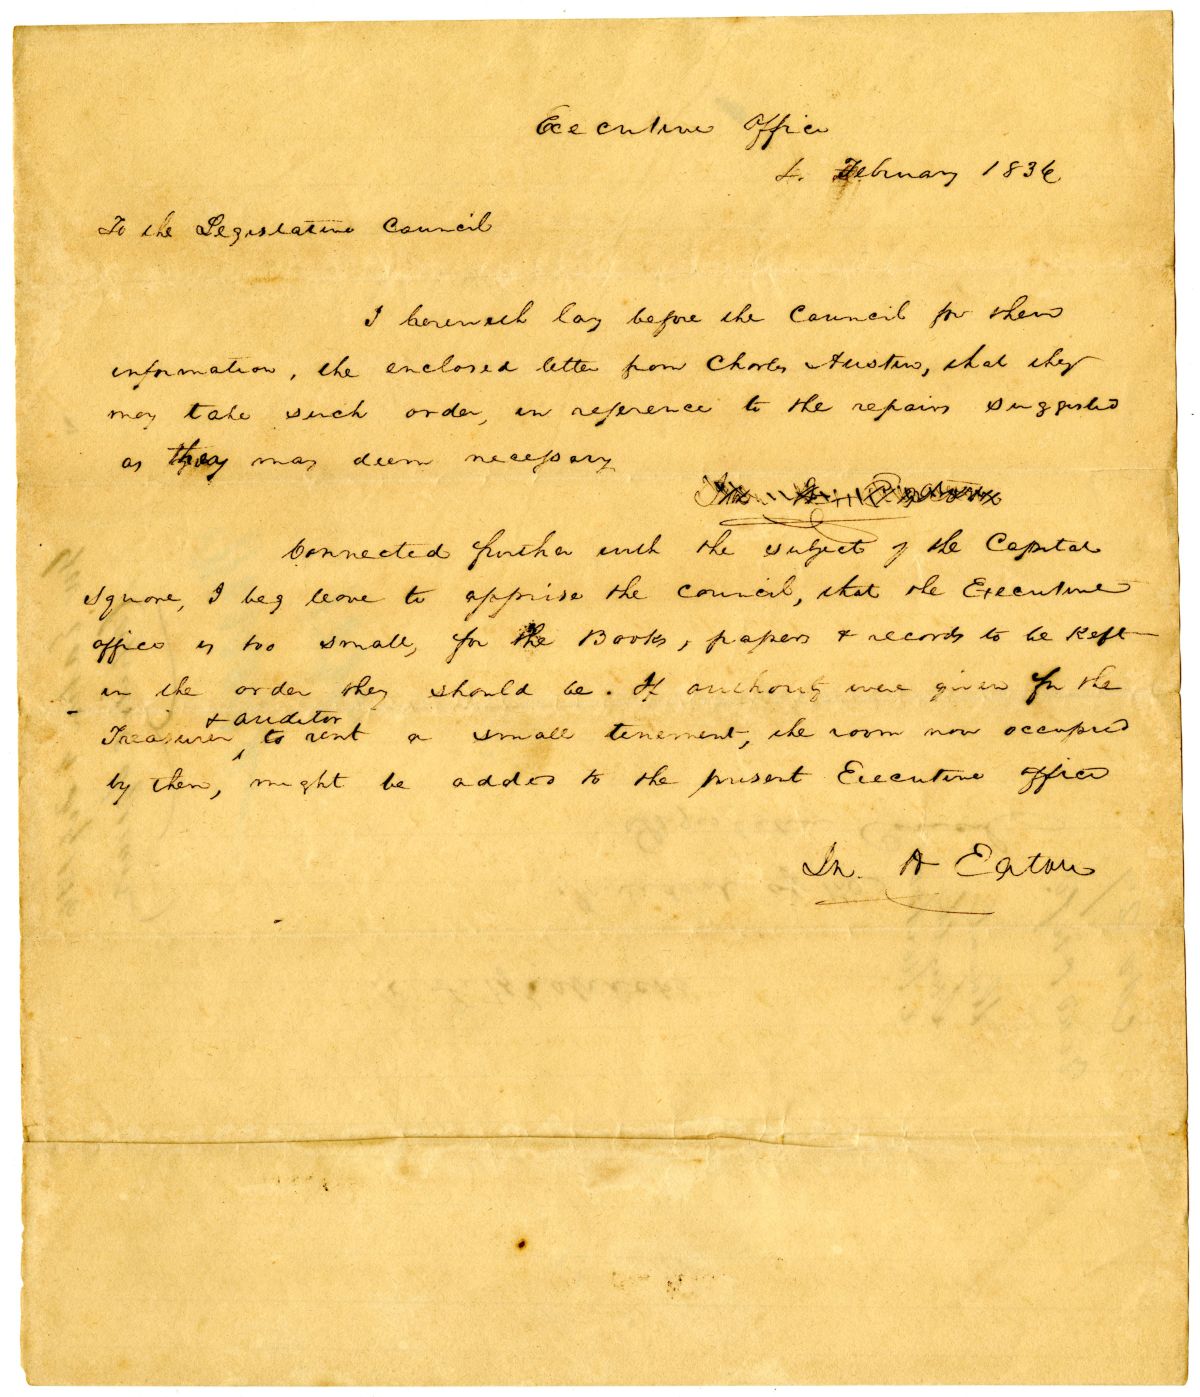 Executive Office
4. February 1836
To the Legislative Council
I herewith lay before the Council for their
information, the enclosed letter from Charles Austin, that they
may take such order, in reference to the repairs suggested
as they may deem necessary
Jno. H. Eaton
Connected further with the subject of the Capital
Square, I beg leave to apprise the council, that the Executive
office is too small, for the Books, papers & records to be kept
in the order they should be. If authority were given for the
& auditor
Treasurer, to rent a small tenement, the room now occupied
by them, might be added to the present Executive office
Jn. H Eaton